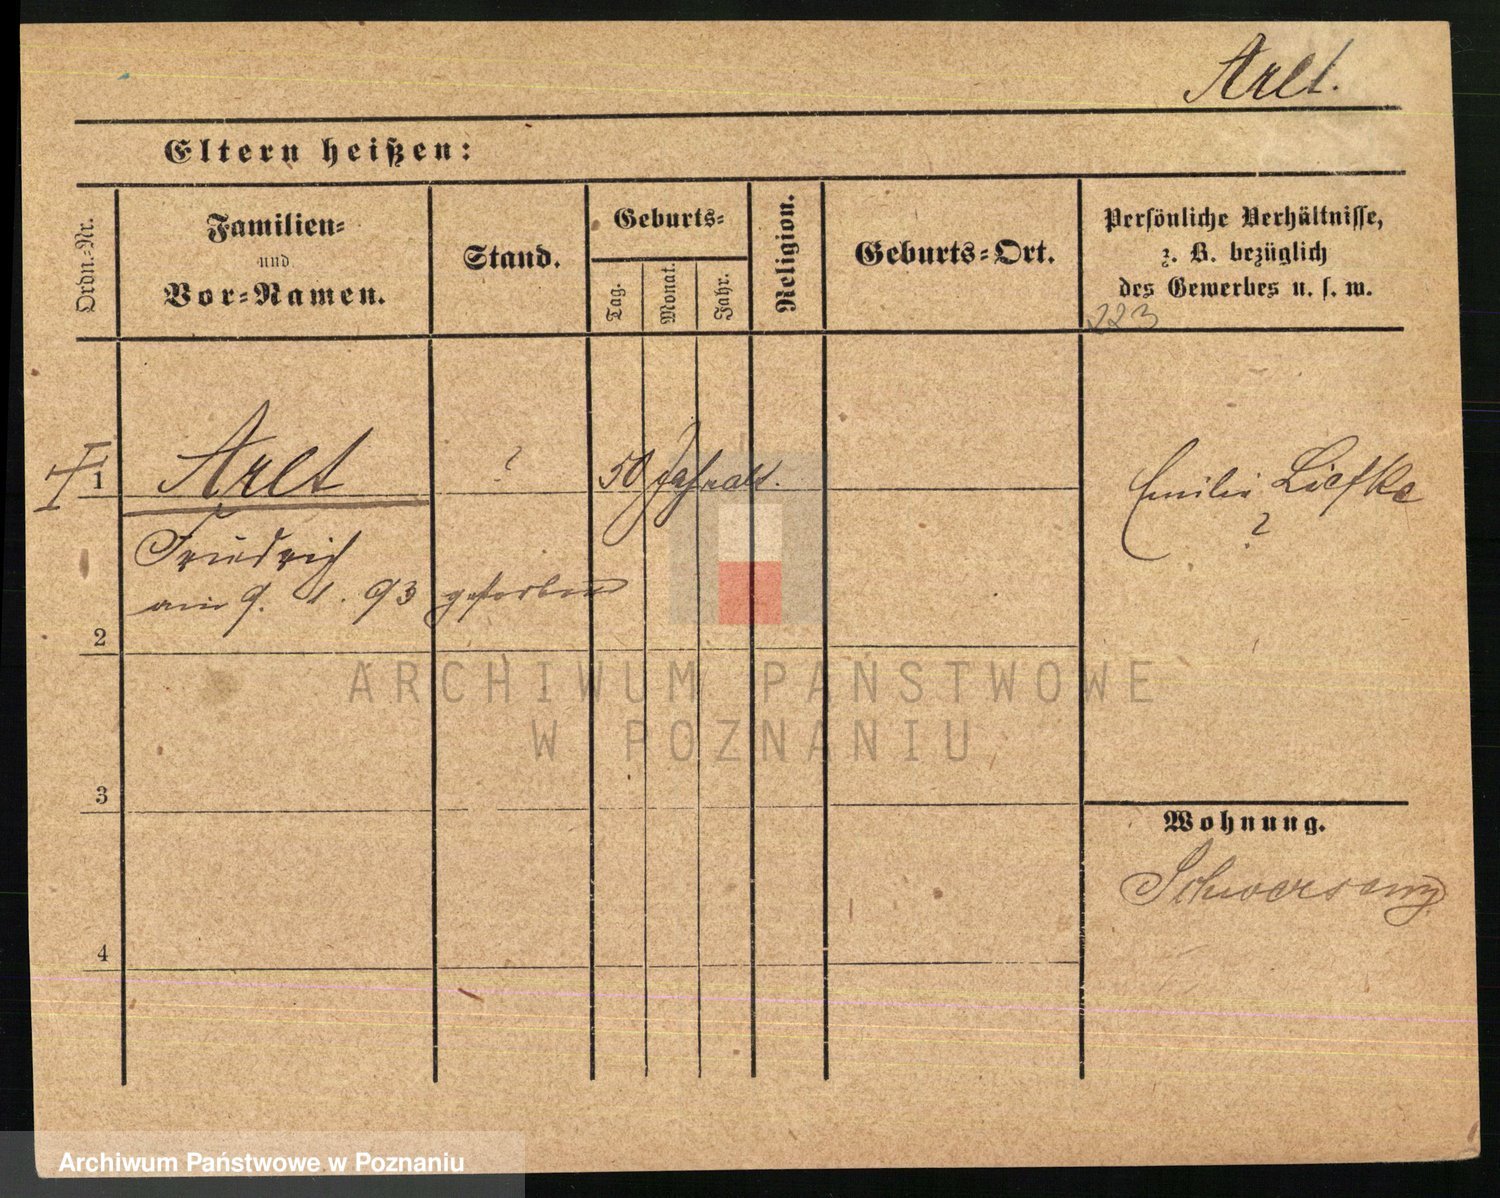 Arlt.
Eltern heißen:
Ordn.-Nr.
Familien-
und
Vor-Namen.
Stand.
Geburts-
Tag.
Monat.
Jahr.
Religion.
Geburts-Ort.
Persönliche Verhältnisse,
z. B. bezüglich
des Gewerbes u. s. w.
223
1
Arlt
?
50 Jahr alt.
Emilie Liefke
?
Friedrich
am 9. 1. 93 gestorben
2
ARCHIWUM PAŃSTWOWE
W POZNANIU
3
Wohnung.
Schwersenz
4
Archiwum Państwowe w Poznaniu